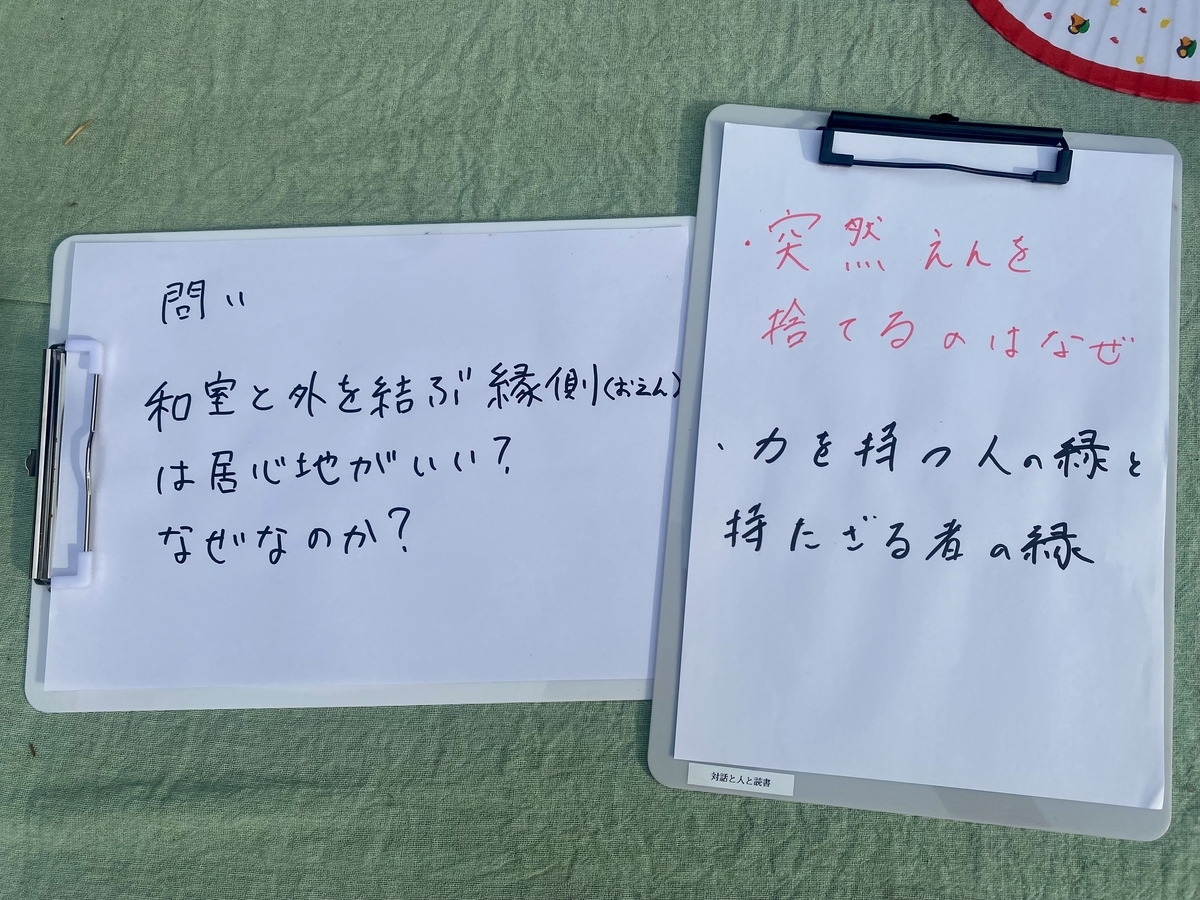 問い
和室と外を結ぶ縁側(おえん)
は居心地がいい?
なぜなのか?
・突然えんを
捨てるのはなぜ
・力を持つ人の縁と
持たざる者の縁
対話と人と読書